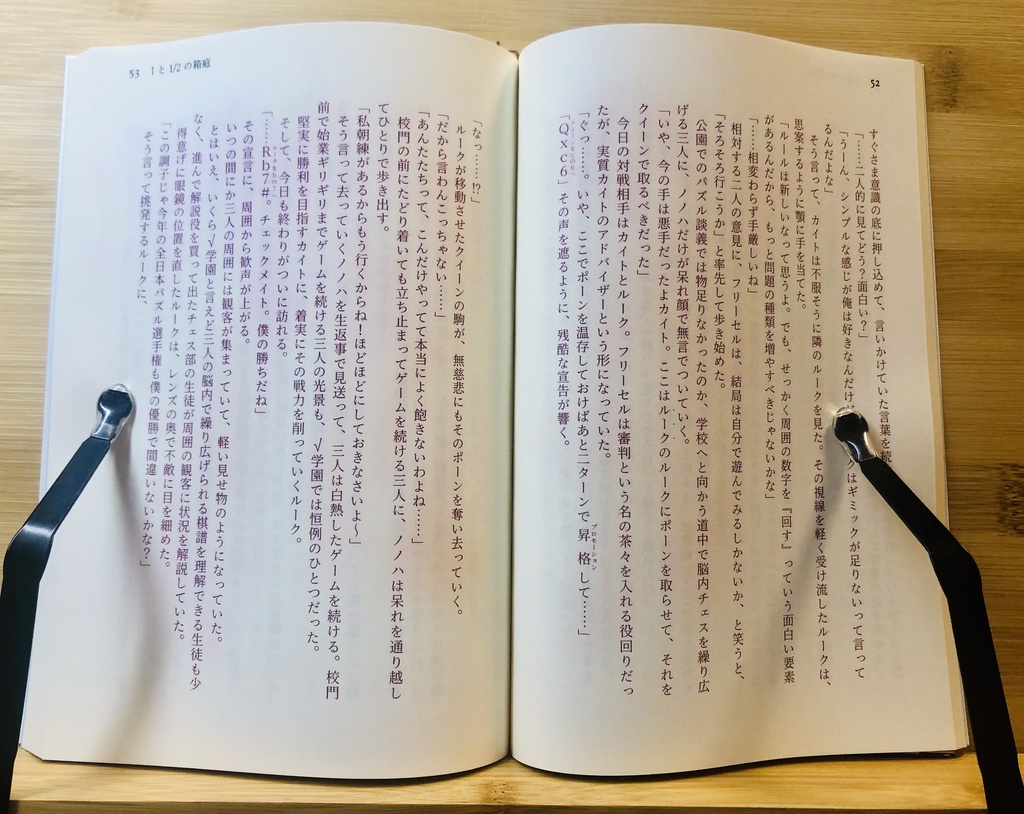 52
すぐさま意識の底に押し込めて、言いかけていた言葉を続
「……二人的に見てどう？面白い？」
「うーん、シンプルな感じが俺は好きなんだけ
クはギミックが足りないって言って
るんだよな」
そう言って、カイトは不服そうに隣のルークを見た。その視線を軽く受け流したルークは、
思案するように顎に手を当てた。
「ルールは新しいなって思うよ。でも、せっかく周囲の数字を『回す』っていう面白い要素
があるんだから、もっと問題の種類を増やすべきじゃないかな」
「……相変わらず手厳しいね」
相対する二人の意見に、フリーセルは、結局は自分で遊んでみるしかないか、と笑うと、
「そろそろ行こうか」と率先して歩き始めた。
公園でのパズル談義では物足りなかったのか、学校へと向かう道中で脳内チェスを繰り広
げる三人に、ノノハだけが呆れ顔で無言でついていく。
「いや、今の手は悪手だったよカイト。ここはルークのルークにポーンを取らせて、それを
クイーンで取るべきだった」
今日の対戦相手はカイトとルーク。フリーセルは審判という名の茶々を入れる役回りだっ
たが、実質カイトのアドバイザーという形になっていた。
「ぐっ……。いや、ここでポーンを温存しておけばあと二ターンで昇格して……」
プロモーション
「Qxc6」その声を遮るように、残酷な宣告が響く。
53 1と1/2の箱庭
「なっ……!?」
ルークが移動させたクイーンの駒が、無慈悲にもそのポーンを奪い去っていく。
「だから言わんこっちゃない……」
「あんたたちって、こんだけやってて本当によく飽きないわよね……」
校門の前にたどり着いても立ち止まってゲームを続ける三人に、ノノハは呆れを通り越し
てひとりで歩き出す。
「私朝練があるからもう行くからね！ほどほどにしておきなさいよ〜」
そう言って去っていくノノハを生返事で見送って、三人は白熱したゲームを続ける。校門
前で始業ギリギリまでゲームを続ける三人の光景も、√学園では恒例のひとつだった。
堅実に勝利を目指すカイトに、着実にその戦力を削っていくルーク。
そして、今日も終わりがついに訪れる。
「……Rb7#。チェックメイト。僕の勝ちだね」
その宣言に、周囲から歓声が上がる。
いつの間にか三人の周囲には観客が集まっていて、軽い見せ物のようになっていた。
とはいえ、いくら√学園と言えど三人の脳内で繰り広げられる棋譜を理解できる生徒も少
なく、進んで解説役を買って出たチェス部の生徒が周囲の観客に状況を解説していた。
得意げに眼鏡の位置を直したルークは、レンズの奥で不敵に目を細めた。
「この調子じゃ今年の全日本パズル選手権も僕の優勝で間違いないかな？」
そう言って挑発するルークに、